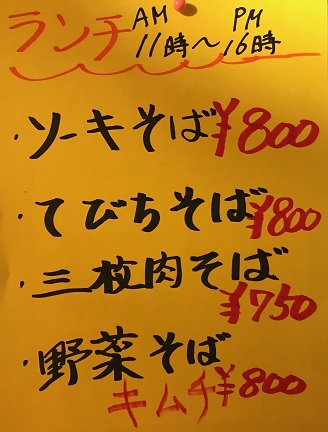 ランチ AM 11時〜PM 16時
・ソーキそば ¥800
・てびちそば ¥800
・三枚肉そば ¥750
・野菜そば
キムチ ¥800